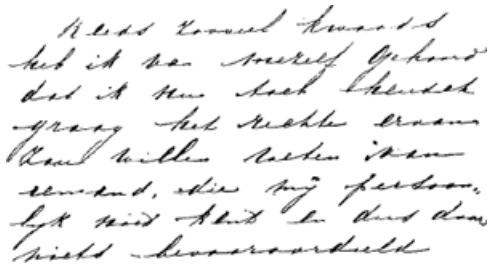 Reeds zooveel kwaads
heb ik van mezelf gehoord
dat ik nu toch
graag het rechte ervan
zou willen weten van
iemand, die mij persoon-
lijk niet kent en dus door
niets bevooroordeeld